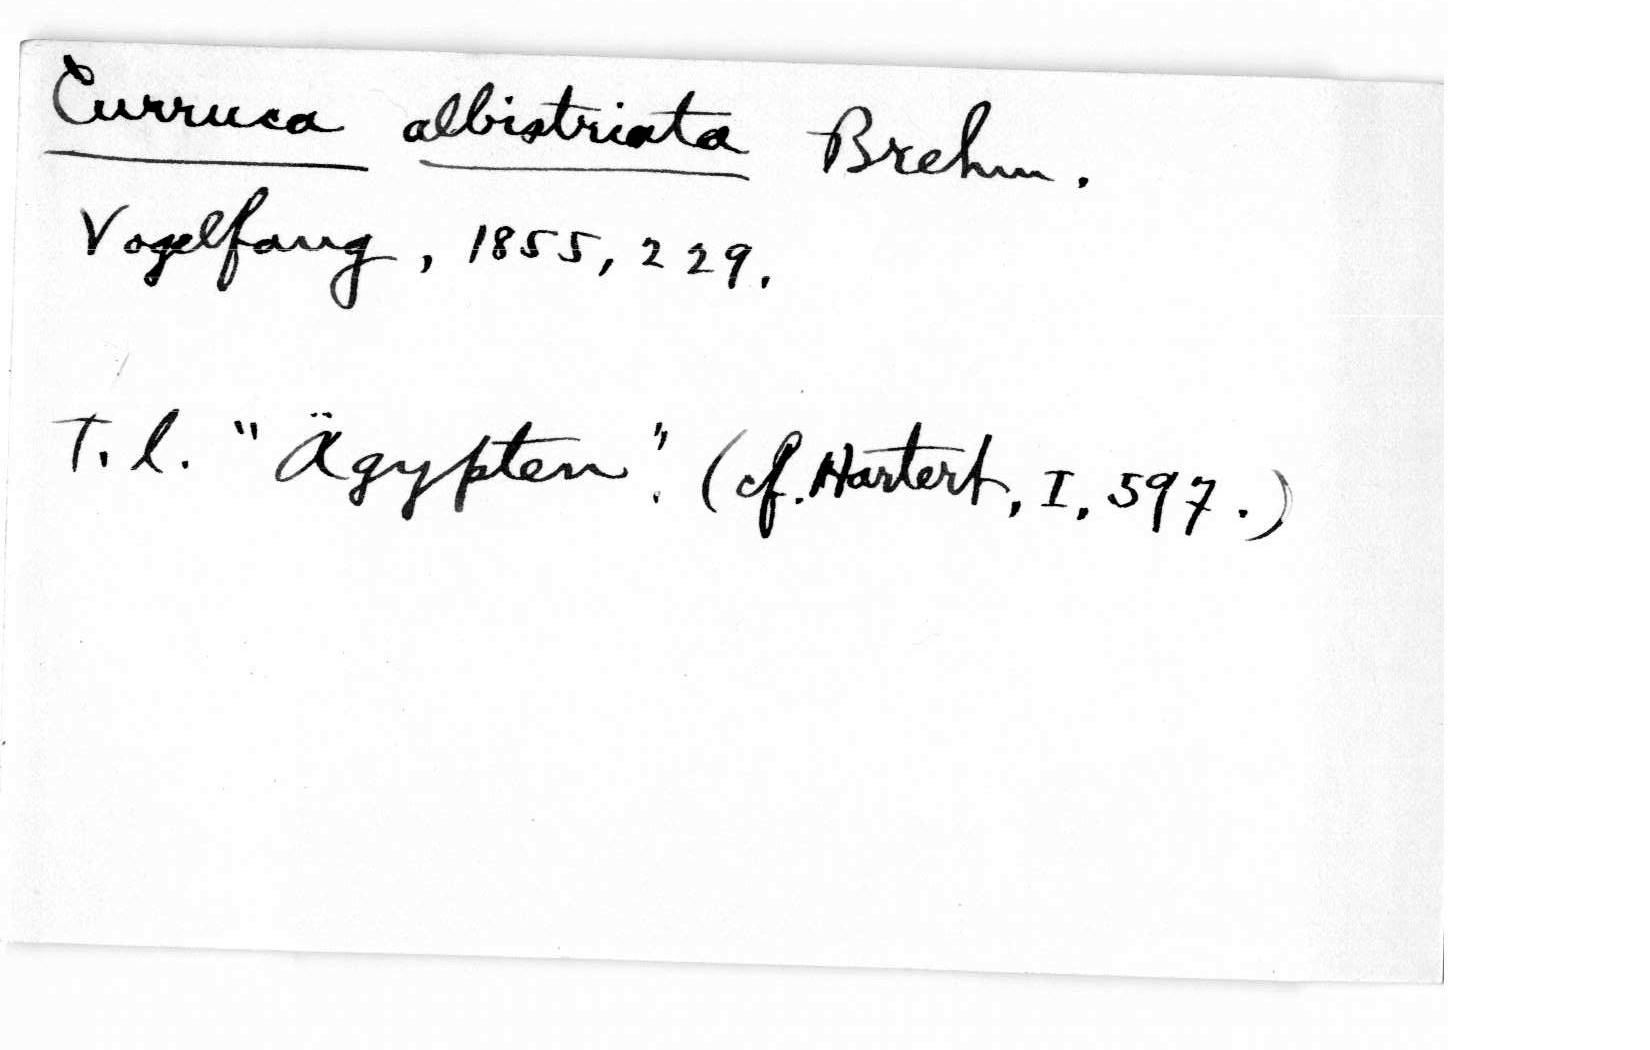 Curruca albistriata Brehm.
Vogelfang, 1855, 229.
T. l. "Ägypten". (cf. Hartert, I, 597.)